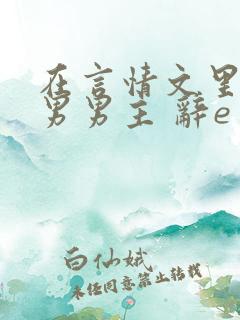 在言情文里
男男主 辞e
白仙娥
未经同意禁止转载